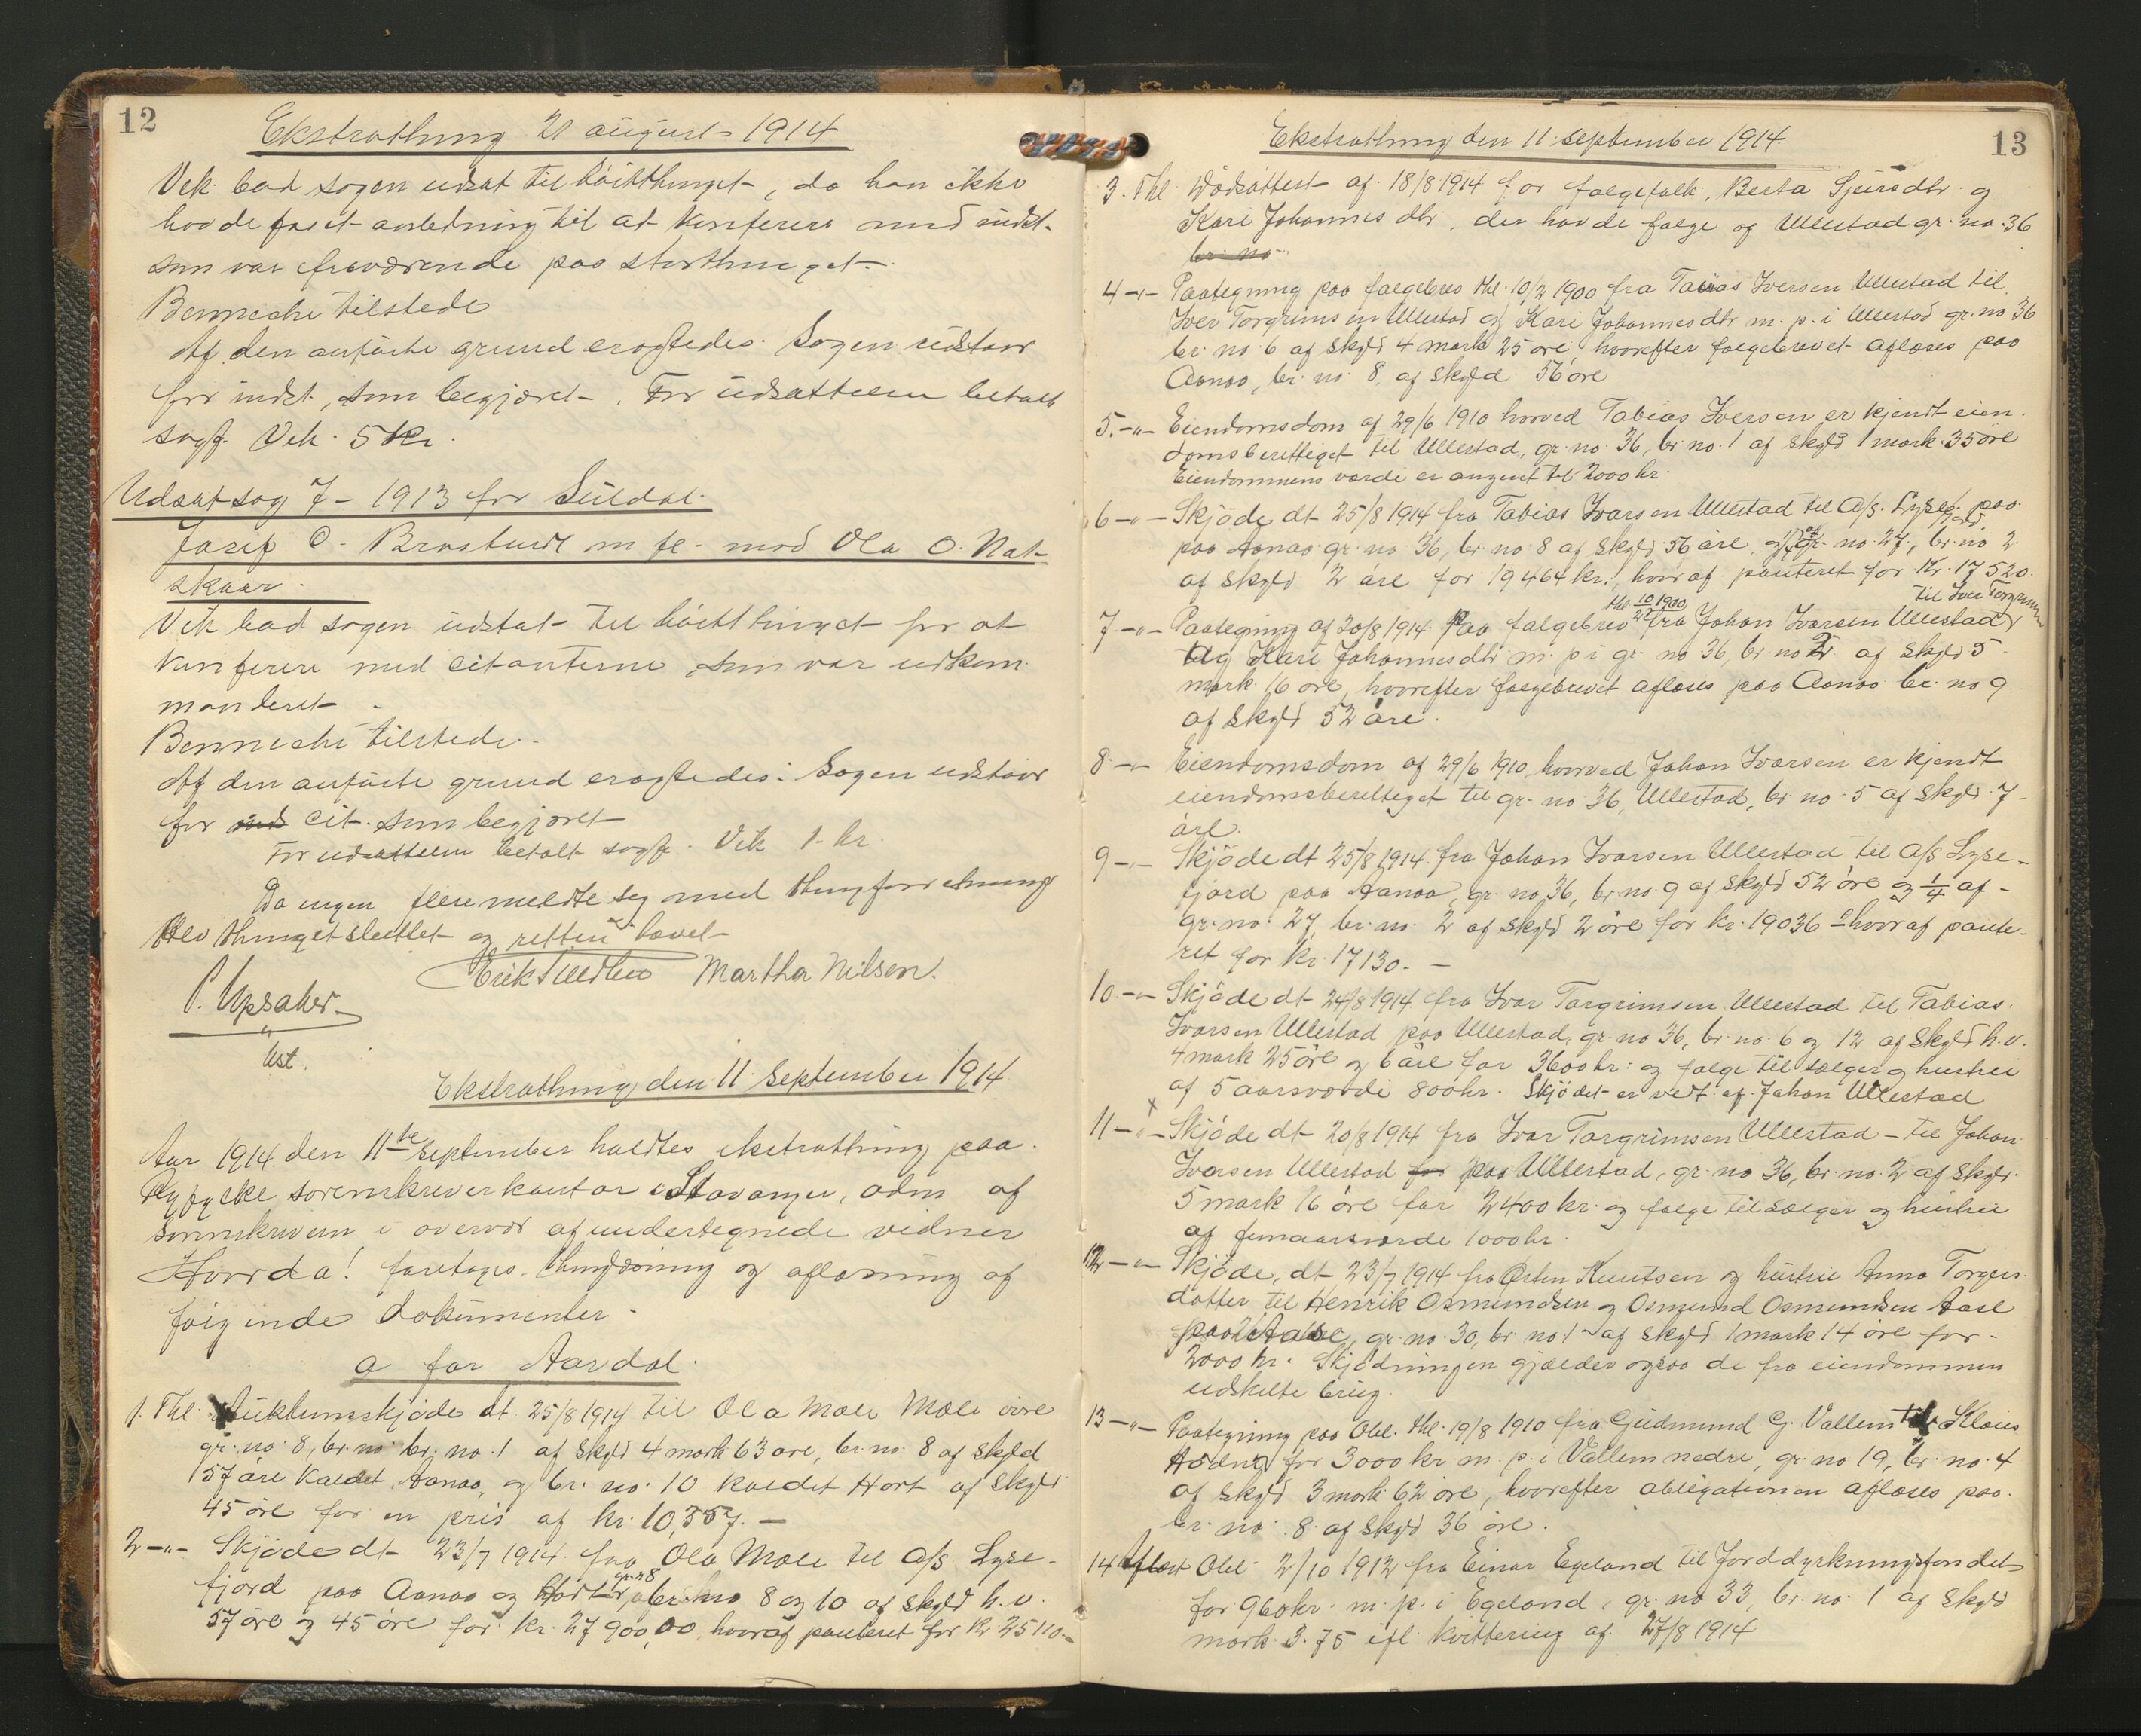 12
Ekstrathing 21 august 1914
Vek. bad sagen udsat til høistthinget, da han ikke
havde faaet anledning til at konferere med indst.
som var fraværende paa storthinget.
Benneche tilstede
Af den anførte grund eragtedes: Sagen udstaar
for indst., som begjæret. For udsættelsen betalt
sagf. Vek. 5 kr.
Udsat sag 7 - 1913 for Suldal.
O. m fl. mod Ola O. Nat-
skaar.
Vek bad sagen udsat til høistthinget for at
konferere med citanterne som var udkom-
manderet.
Benneche tilstede.
Af den anførte grund eragtedes: Sagen udstaar
for ind cit. som begjæret
For udsættelsen betalt sagf. Vek 1. kr.
Da ingen flere meldte sig med thingforretninger
blev thinget sluttet og retten hævet
Martha Nilsen.
P. Upsaker
Ekstrathing den 11 september 1914
Aar 1914 den 11te september holdtes ekstrathing paa
Ryfylke sorenskriverkontor i Stavanger, adm af
sorenskriveren i overvær af undertegnede vidner
Hvorda! foretoges thinglæsning og aflæsning af
følgende dokumenter.
a for Aardal.
1. Thl. Auktionsskjøde dt. 25/8 1914 til Ola Mæle Mæle øvre
gr. no. 8, br. no br. no. 1 af skyld 4 mark 63 øre, br. no. 8 af skyld
57 øre kaldet Aanaa, og br. no. 10 kaldet Hort af skyld
45 øre for en pris af kr. 10,357. -
2 -"- Skjøde dt 23/7 1914 fra Ola Mæle til A/S Lyse-
fjord paa Aanaa og Hort gr. n 8, br. no 8 og 10 af skyld h. v.
57 øre og 45 øre for kr. 27 900,00, hvoraf panteret for kr 25110.-
13
Ekstrathing den 11 september 1914.
3. Thl. Dødsattest af 18/8 1914 for følgefolk, Berta Sjursdtr. og
Kari Johannesdtr. der havde følge af Ullestad gr. no. 36
br. no.
4 -"- Paategning paa følgebrev thl. 10/2 1900 fra Tobias Iversen Ullestad til
Iver Torgrimsen Ullestad og Kari Johannesdtr m. p. i Ullestad gr. no 36
br. no 6 af skyld 4 mark 25 øre, hvorefter følgebrevet aflæses paa
Aanaa, br. no. 8. af skyld 56 øre
5. -"- Eiendomsdom af 29/6 1910 hvorved Tobias Iversen er kjendt eien-
domsberettiget til Ullestad, gr. no. 36, br. no. 1 af skyld 1 mark 35 øre
Eiendommens værdi er angivet til 2000 kr.
6 -"- Skjøde dt 25/8 1914 fra Tobias Ivarsen Ullestad til A/S. Lysefjord paa
paa Aanaa gr. no 36, br. no. 8 af skyld 56 øre, og 1/4 af gr. no. 27, br. no 2
af skyld 2 øre for 19464 kr., hvoraf panteret for kr. 17520.
7 -"- Paategning af 20/8 1914 paa følgebrev thl 10/2 1900 fra Johan Ivarsen Ullestad til Iver Torgrimsen
og Kari Johannesdtr m. p i gr. no 36, br. no 2. af skyld 5
mark 16 øre, hvorefter følgebrevet aflæses paa Aanaa br. no 9
af skyld 52 øre.
8 -"- Eiendomsdom af 29/6 1910, hvorved Johan Ivarsen er kjendt
eiendomsberettiget til gr. no 36, Ullestad, br. no. 5 af skyld 7
øre.
9 -"- Skjøde dt 25/8 1914 fra Johan Ivarsen Ullestad til A/S Lyse-
fjord paa Aanaa, gr. no 36, br. no. 9 af skyld 52 øre og 1/4 af
gr. no. 27, br. no. 2 af skyld 2 øre for kr. 19036 - hvoraf pante-
ret for kr. 17130. -
10 -"- Skjøde dt 24/8 1914 fra Ivar Torgrimsen Ullestad til Tobias
Ivarsen Ullestad paa Ullestad, gr. no 36, br. no. 6 og 12 af skyld h. v.
4 mark 25 øre og 6 øre for 3600 kr. og følge til sælger og hustru
af 5 aarsværdi 800 kr. Skjødet er vedt. af Johan Ullestad
x
11 -"- Skjøde dt 20/8 1914 fra Ivar Torgrimsen Ullestad - til Johan
Ivarsen Ullestad for paa Ullestad, gr. no 36, br. no. 2 af skyld
5 mark 16 øre for 2400 kr. og følge til sælger og hustru
af femaarsværde 1000 kr.
12 -"- Skjøde, dt 23/7 1914 fra Østen Knutsen og hustru Anna Torgers-
datter til Henrik Osmundsen og Osmund Osmundsen Aase
paa Aase, gr. no. 30, br. no. 1 af skyld 1 mark 14 øre for
2000 kr. Skjødningen gjælder ogsaa de fra eiendommen
udskilte brug.
13 -"- Paategning paa Obl. thl. 19/8 1910 fra Gudmund G. Vallem til Klaus
for 3000 kr m. p. i Vallem nedre, gr. no 19, br. no. 4
af skyld 3 mark 62 øre, hvorefter obligationen aflæses paa
br. no. 8 af skyld 36 øre.
14 Aflæst Obl 2/10 1912 fra Einar Egeland til Jorddyrkningsfondet
for 960 kr. m. p. i Egeland, gr. no 33, br. no. 1 af skyld
mark 3.75 ifl. kvittering af 27/8 1914